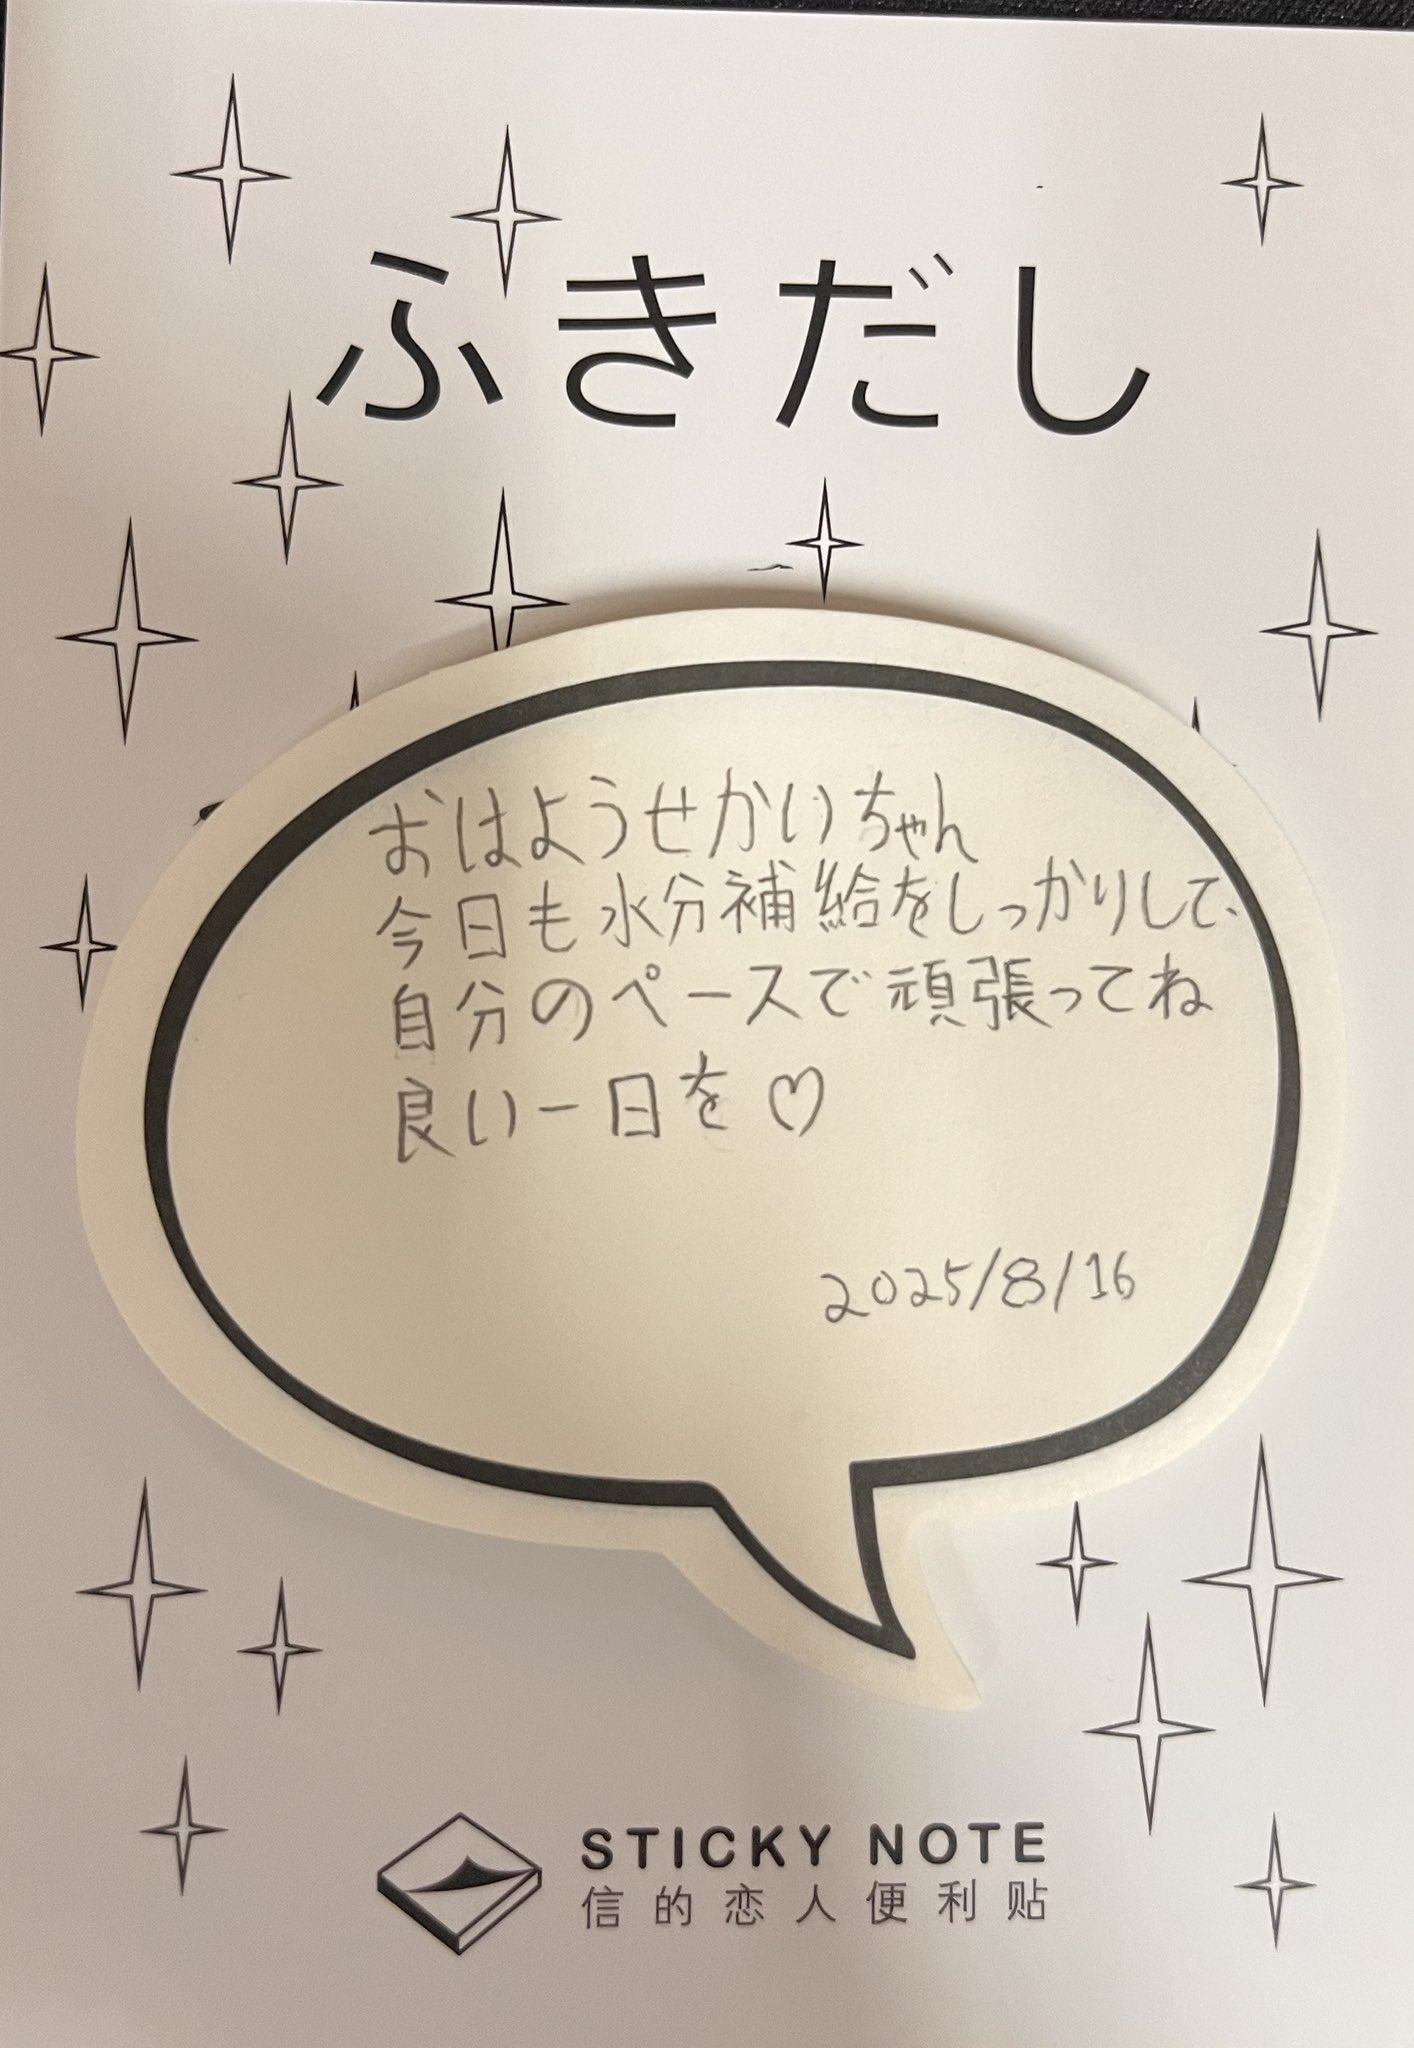 ふきだし
おはようせかいちゃん
今日も水分補給をしっかりして、
自分のペースで頑張ってね
良い一日を♡
2025/8/16
STICKY NOTE
信的恋人便利贴